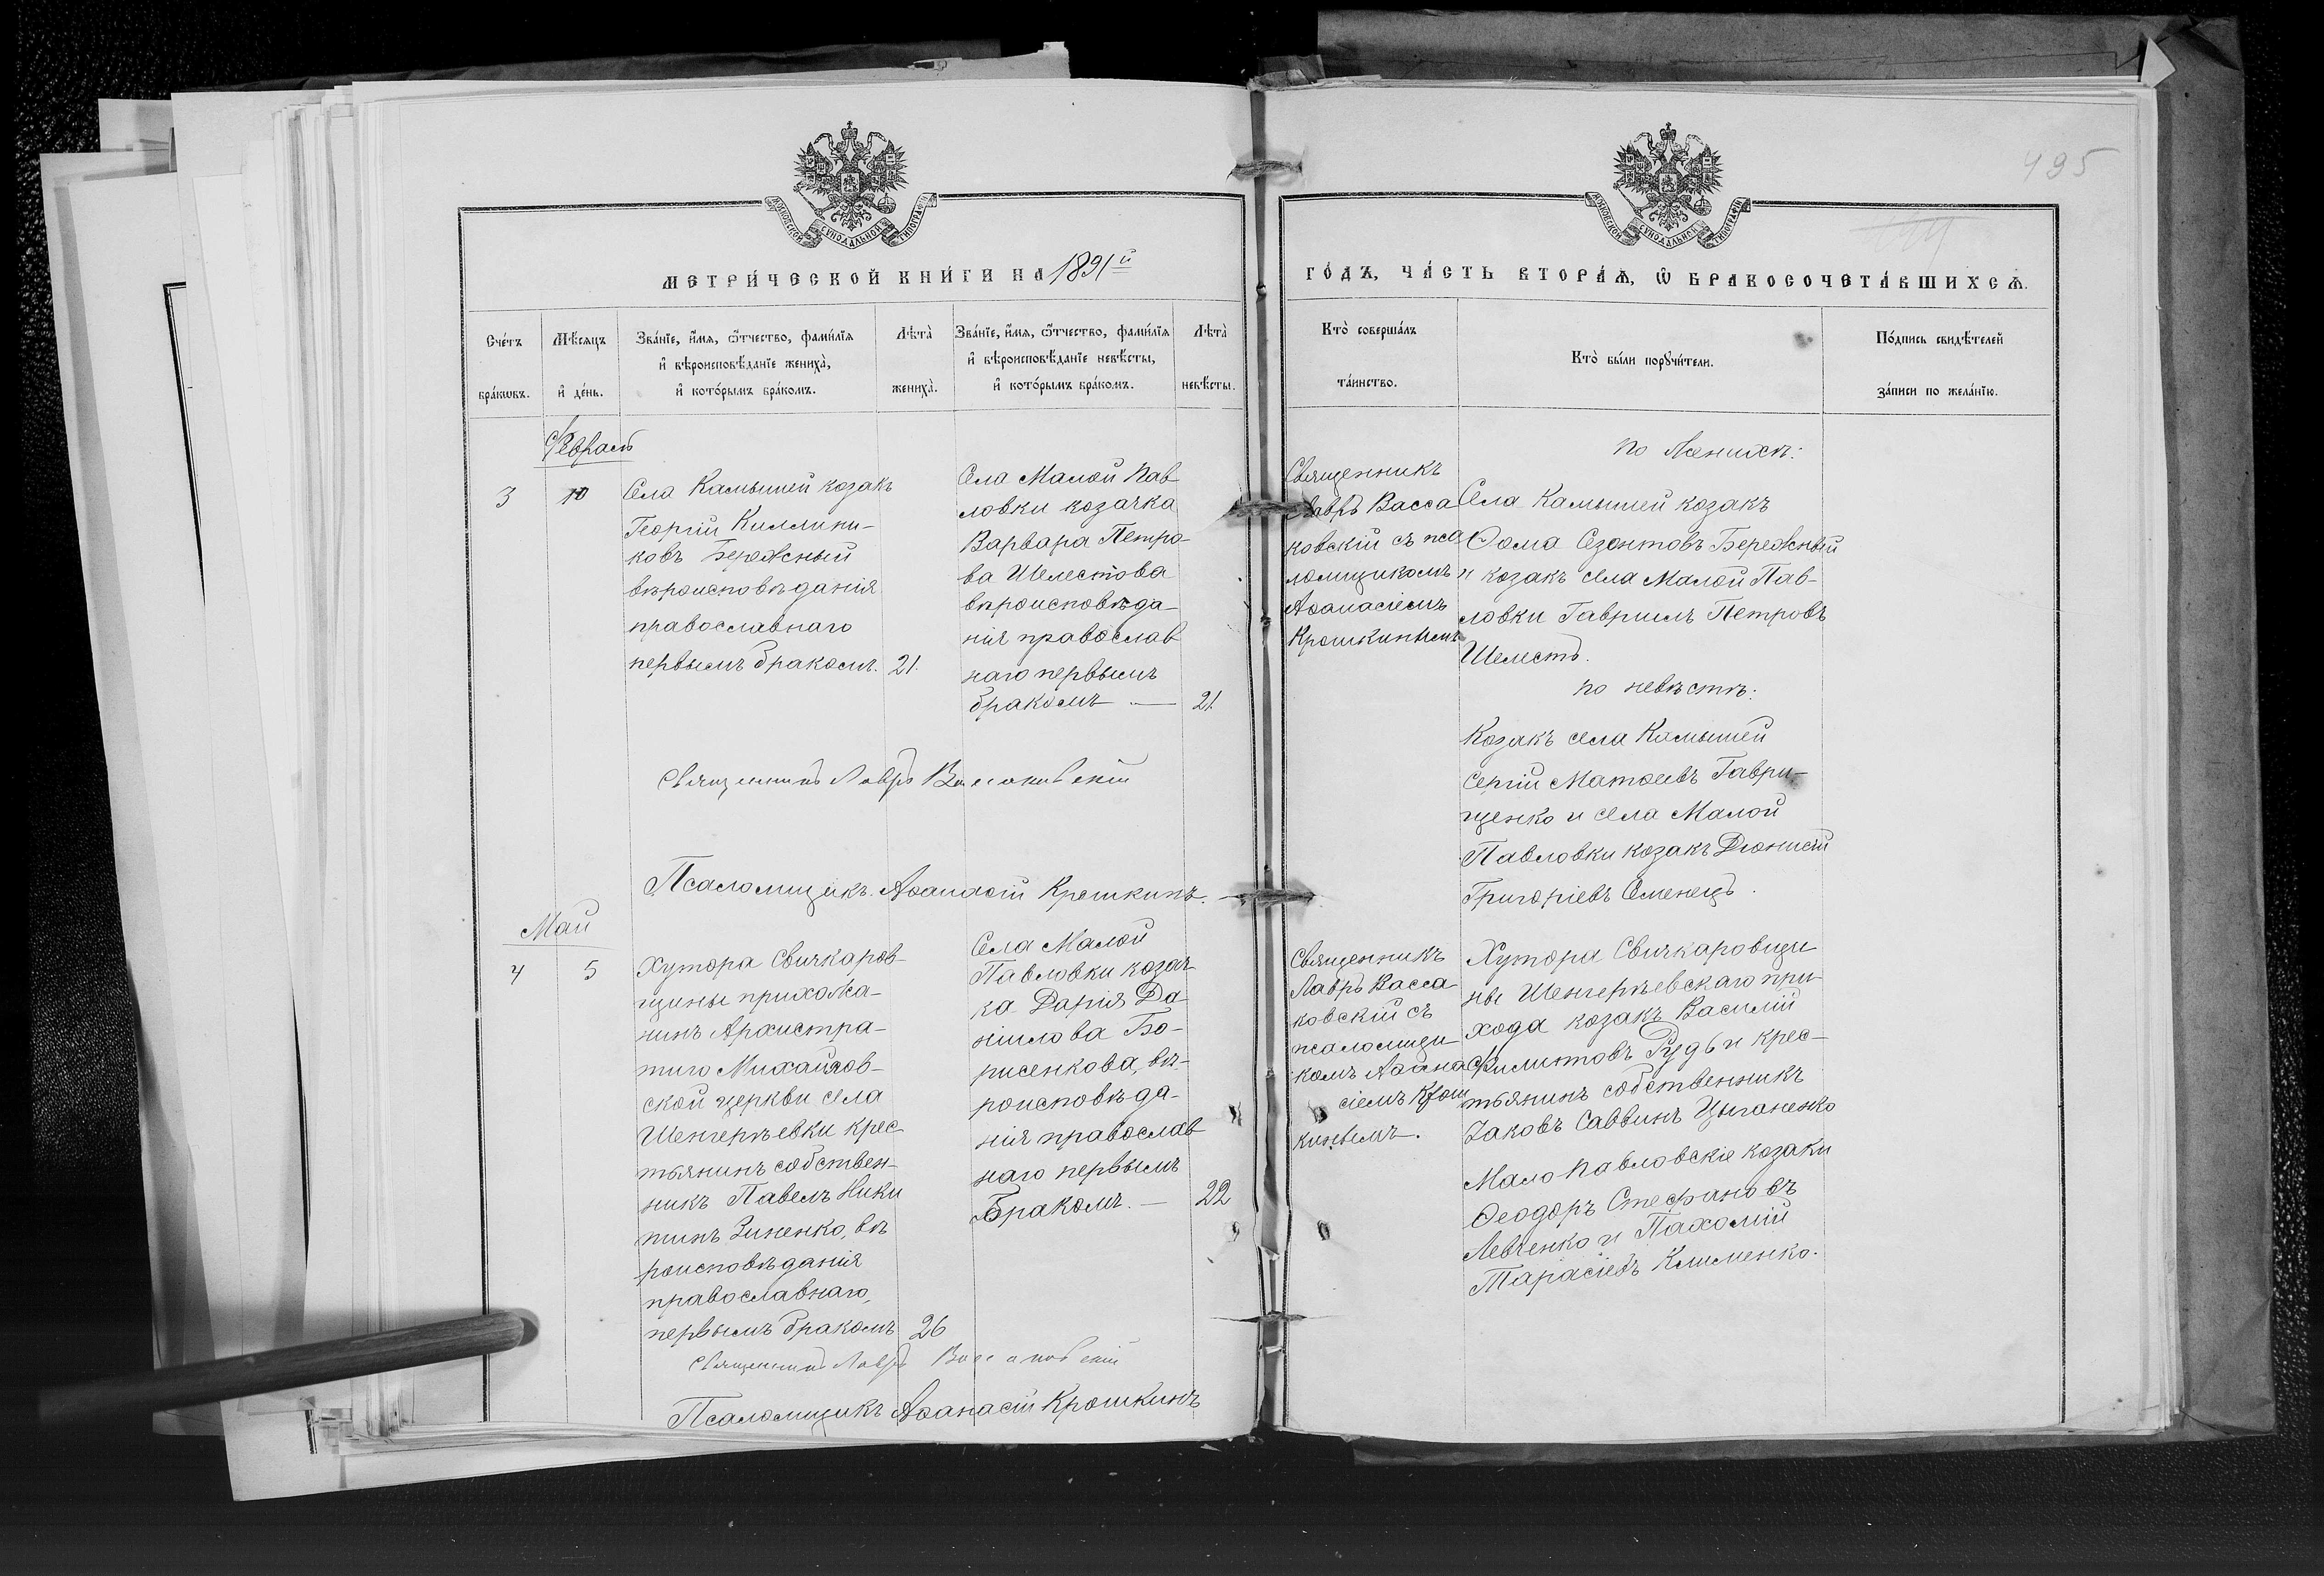 495
МОСКОВСКОЙ СУНОДАЛЬНОЙ ТИПОГРАФІИ
МОСКОВСКОЙ СУНОДАЛЬНОЙ ТИПОГРАФІИ
МЕТРИ́ЧЕСКОЙ КНИ́ГИ НА 1891й
ГО́ДЪ, ЧА́СТЬ ВТОРА́Ѧ, Ѽ БРАКОСОЧЕТА́ВШИХСѦ.
Сче́тъ
бра́кѡвъ.
Мѣ́сяцъ
и҆ де́нь.
Зва́нїе, и҆́мѧ, ѻ҆́тчество, фами́лїѧ
и҆ вѣроисповѣ́данїе жениха̀,
и҆ кото́рымъ бра́комъ.
Лѣта̀
жениха̀.
Зва́нїе, и҆́мѧ, ѻ҆́тчество, фами́лїѧ
и҆ вѣроисповѣ́данїе невѣ́сты,
и҆ кото́рымъ бра́комъ.
Лѣта̀
невѣ́сты.
Кто̀ соверша́лъ
та́инство.
Кто̀ бы́ли порꙋчи́тели.
По́дпись свидѣ́телей
за́писи по жела́нїю.
Февраль
3
10
Села Камышей козакъ
Георгій Киллини-
ковъ Бережный
вѣроисповѣданія
православнаго
первымъ бракомъ.
21.
Села Малой Пав
ловки козачка
Варвара Петро-
ва Шелестова
вѣроисповѣда-
нія православ
наго первымъ
бракомъ —
21.
Священникъ
Лавръ Васса
ковскій съ пса
ломщикомъ
Аѳанасіемъ
Крошкинымъ
по женихѣ:
Села Камышей козакъ
Ѳома Созонтовъ Бережный
и козакъ села Малой Пав-
ловки Гавриилъ Петровъ
Шелестъ.
по невѣстѣ:
Козакъ села Камышей
Сергій Матѳеевъ Гаври-
щенко и села Малой
Павловки козакъ Діонисій
Григоріевъ Семенецъ.
Священникъ Лавръ Вассаковскій
Псаломщикъ Аѳанасій Крошкинъ.
Май
4
5
Хутора Свичкаров-
щины прихожа-
нинъ Архистра-
тиго Михайлов-
ской церкви села
Шенгерѣевки крес
тьянинъ собствен-
никъ Павелъ Ники
тинъ Зиненко, вѣ
роисповѣданія
православнаго,
первымъ бракомъ
26
Села Малой
Павловки козач
ка Дарія Да
ніилова Бо-
рисенкова, вѣ-
роисповѣда-
нія православ
наго первымъ
Бракомъ. —
22
Священникъ
Лавръ Васса
ковскій съ
псаломщи
комъ Аѳана
сіемъ Крош
кинымъ.
Хутора Свичкаровщи
ны Шенгерѣевскаго при
хода козакъ Василій
Филиповъ Рудь и крес-
тьянинъ собственникъ
Іаковъ Саввинъ Цыганенко
Мало Павловскіе козаки
Ѳеодоръ Стефановъ
Левченко и Пахомій
Тарасіевъ Клименко.
Священникъ Лавръ Вассаковскій
Псаломщикъ Аѳанасій Крошкинъ